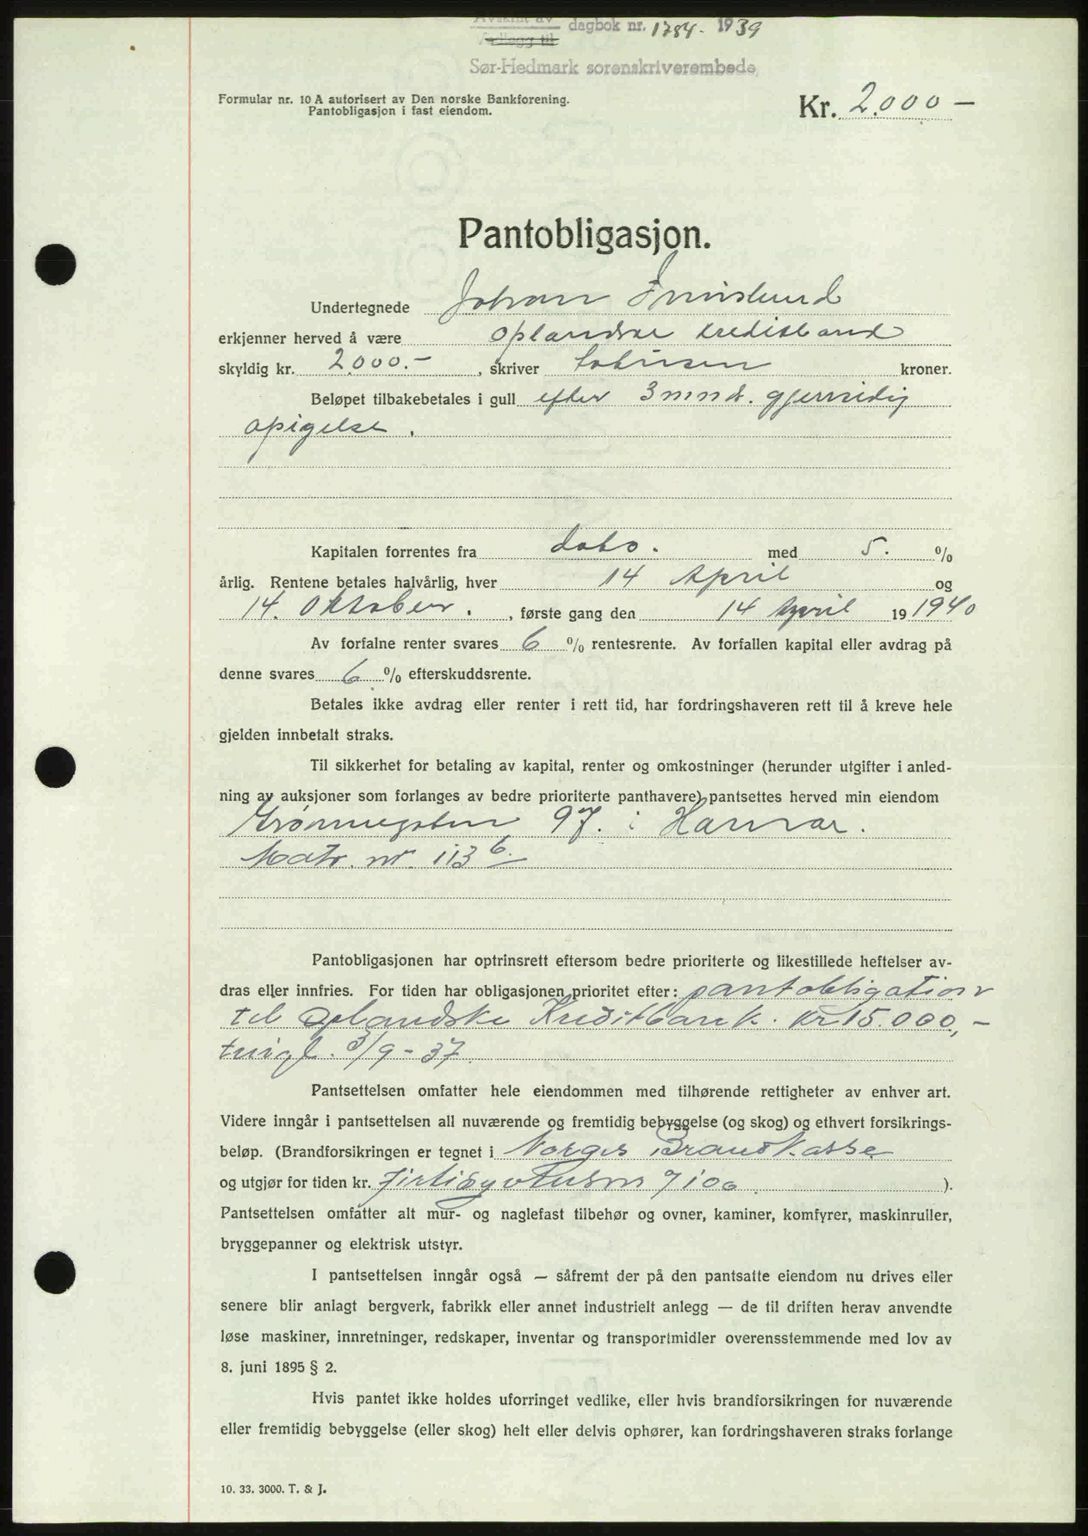 Avskrift av dagbok nr. 1784 - 1939
Vedlegg til
Sør-Hedmark sorenskriverembede
Formular nr. 10 A autorisert av Den norske Bankforening.
Pantobligasjon i fast eiendom.
Kr. 2.000 —
Pantobligasjon.
Undertegnede Johan
erkjenner herved å være Oplandske Kreditbank
skyldig kr. 2.000.-, skriver totusen kroner.
Beløpet tilbakebetales i gull efter 3 mnd. gjensidig
opsigelse.
Kapitalen forrentes fra dato. med 5. %
årlig. Rentene betales halvårlig, hver 14 April og
14. Oktober. , første gang den 14 April 19 1940
Av forfalne renter svares 6 % rentesrente. Av forfallen kapital eller avdrag på
denne svares 6 % efterskuddsrente.
Betales ikke avdrag eller renter i rett tid, har fordringshaveren rett til å kreve hele
gjelden innbetalt straks.
Til sikkerhet for betaling av kapital, renter og omkostninger (herunder utgifter i anled-
ning av auksjoner som forlanges av bedre prioriterte panthavere) pantsettes herved min eiendom
Grønnegaten 97. i Hamar.
Matr. nr. 113 b.
Pantobligasjonen har optrinsrett eftersom bedre prioriterte og likestillede heftelser av-
dras eller innfries. For tiden har obligasjonen prioritet efter: pantobligation
til Oplandske Kreditbank. kr 15.000,-
tinigl. 3/9 - 37.
Pantsettelsen omfatter hele eiendommen med tilhørende rettigheter av enhver art.
Videre inngår i pantsettelsen all nuværende og fremtidig bebyggelse (og skog) og ethvert forsikrings-
beløp. (Brandforsikringen er tegnet i Norges Brandkasse
og utgjør for tiden kr. 7100 ).
Pantsettelsen omfatter alt mur- og naglefast tilbehør og ovner, kaminer, komfyrer, maskinruller,
bryggepanner og elektrisk utstyr.
I pantsettelsen inngår også — såfremt der på den pantsatte eiendom nu drives eller
senere blir anlagt bergverk, fabrikk eller annet industrielt anlegg — de til driften herav anvendte
løse maskiner, innretninger, redskaper, inventar og transportmidler overensstemmende med lov av
8. juni 1895 § 2.
Hvis pantet ikke holdes uforringet vedlike, eller hvis brandforsikringen for nuværende
eller fremtidig bebyggelse (eller skog) helt eller delvis ophører, kan fordringshaveren straks forlange
10. 33. 3000. T. & J.